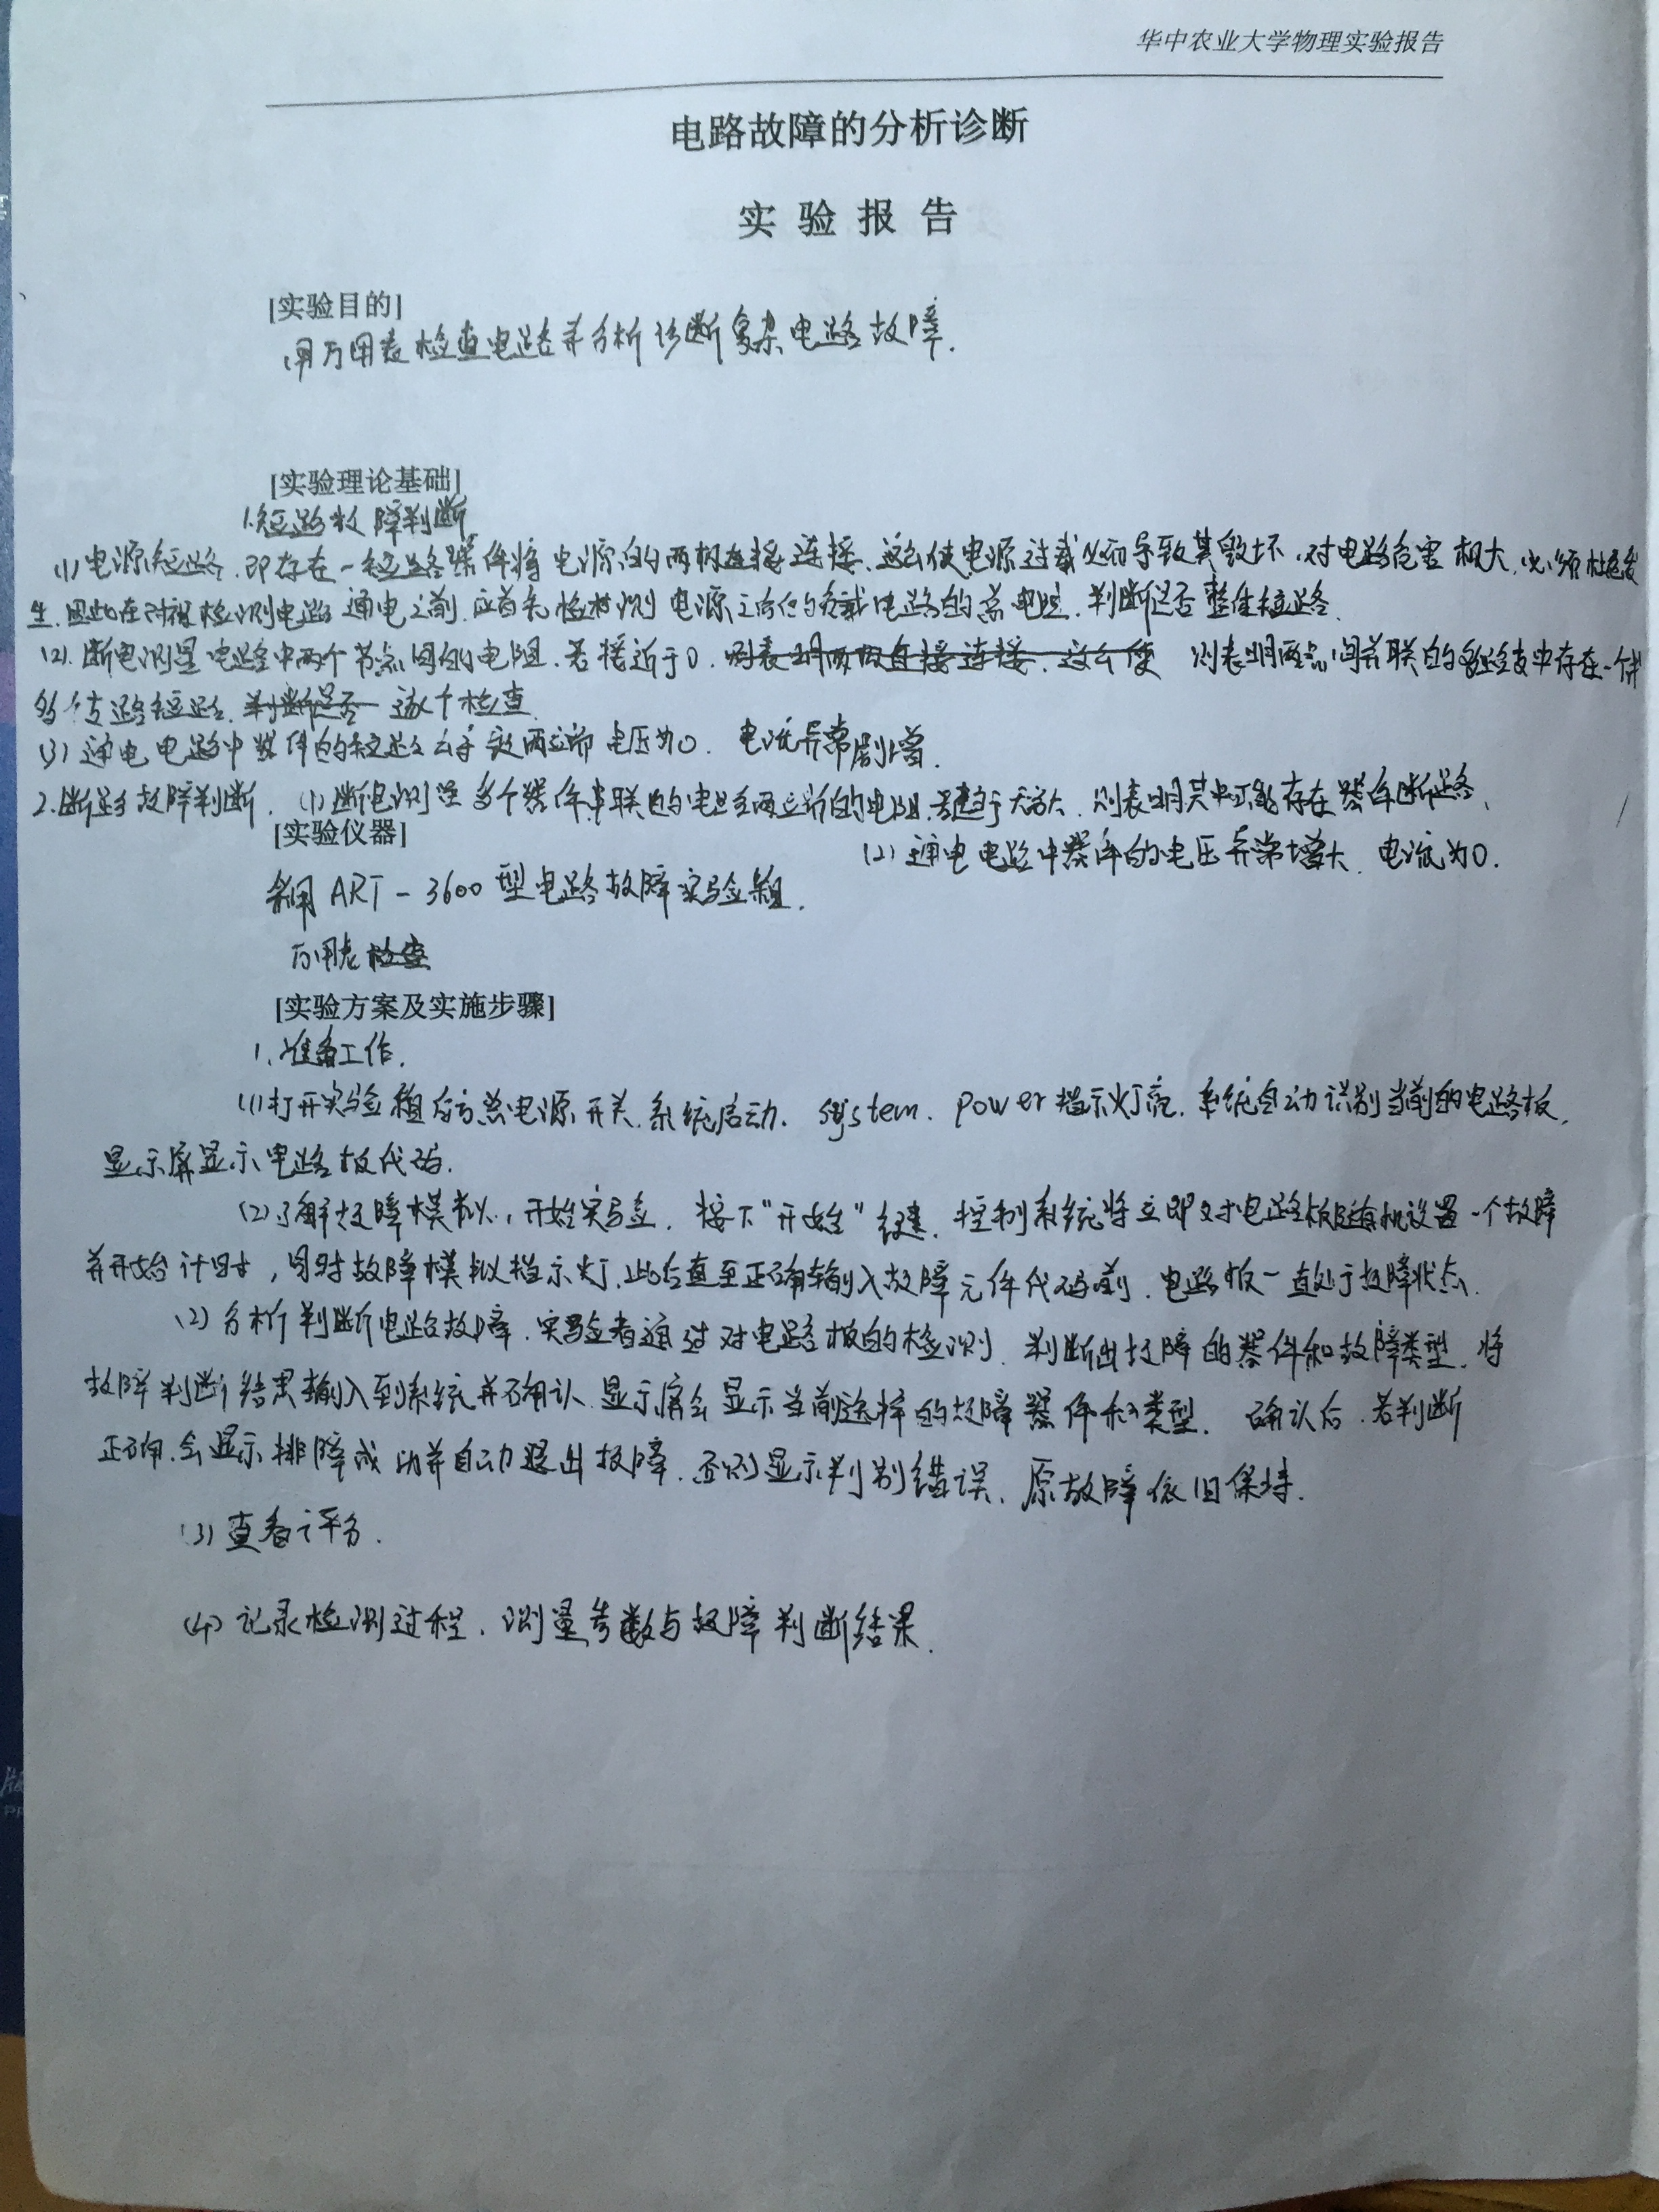 华中农业大学物理实验报告
电路故障的分析诊断
实 验 报 告
[实验目的]
用万用表检查电路并分析诊断复杂电路故障.
[实验理论基础]
1.短路故障判断
(1)电源短路.即存在一短路器件将电源的两极直接连接.这会使电源过载从而导致其毁坏.对电路危害极大.必须杜绝发
生.因此在对 检测电路通电之前.应首先检测 电源 负载电路的总电阻.判断是否整体短路.
(2).断电测量电路中两个节点间的电阻.若接近于0. 则表明两点间并联的多路支中存在一个或
多个支路短路. 逐个检查
(3)通电电路中器件的短路会导致两端电压为0. 电流异常剧增.
2.断路故障判断. (1)断电测量多个器件串联的电路两端的电阻.若趋于无穷大.则表明其中可能存在器件断路.
[实验仪器]
(2)通电电路中器件的电压异常增大.电流为0.
采用ART-3600型电路故障实验箱.
万用表
[实验方案及实施步骤]
1.准备工作.
(1)打开实验箱后方总电源开关.系统启动. system. power指示灯亮.系统自动识别当前的电路板.
显示屏显示电路板代码.
(2)了解故障模拟,开始实验.按下"开始"键.控制系统将立即对电路板随机设置一个故障
并开始计时,同时故障模拟指示灯.此后直至正确输入故障元件代码前.电路板一直处于故障状态.
(2)分析判断电路故障.实验者通过对电路板的检测.判断出故障的器件和故障类型.将
故障判断结果输入到系统并确认.显示屏会显示当前选择的故障器件和类型. 确认后.若判断
正确.会显示排障成功并自动退出故障.否则显示判别错误.原故障依旧保持.
(3)查看评分.
(4)记录检测过程.测量参数与故障判断结果.